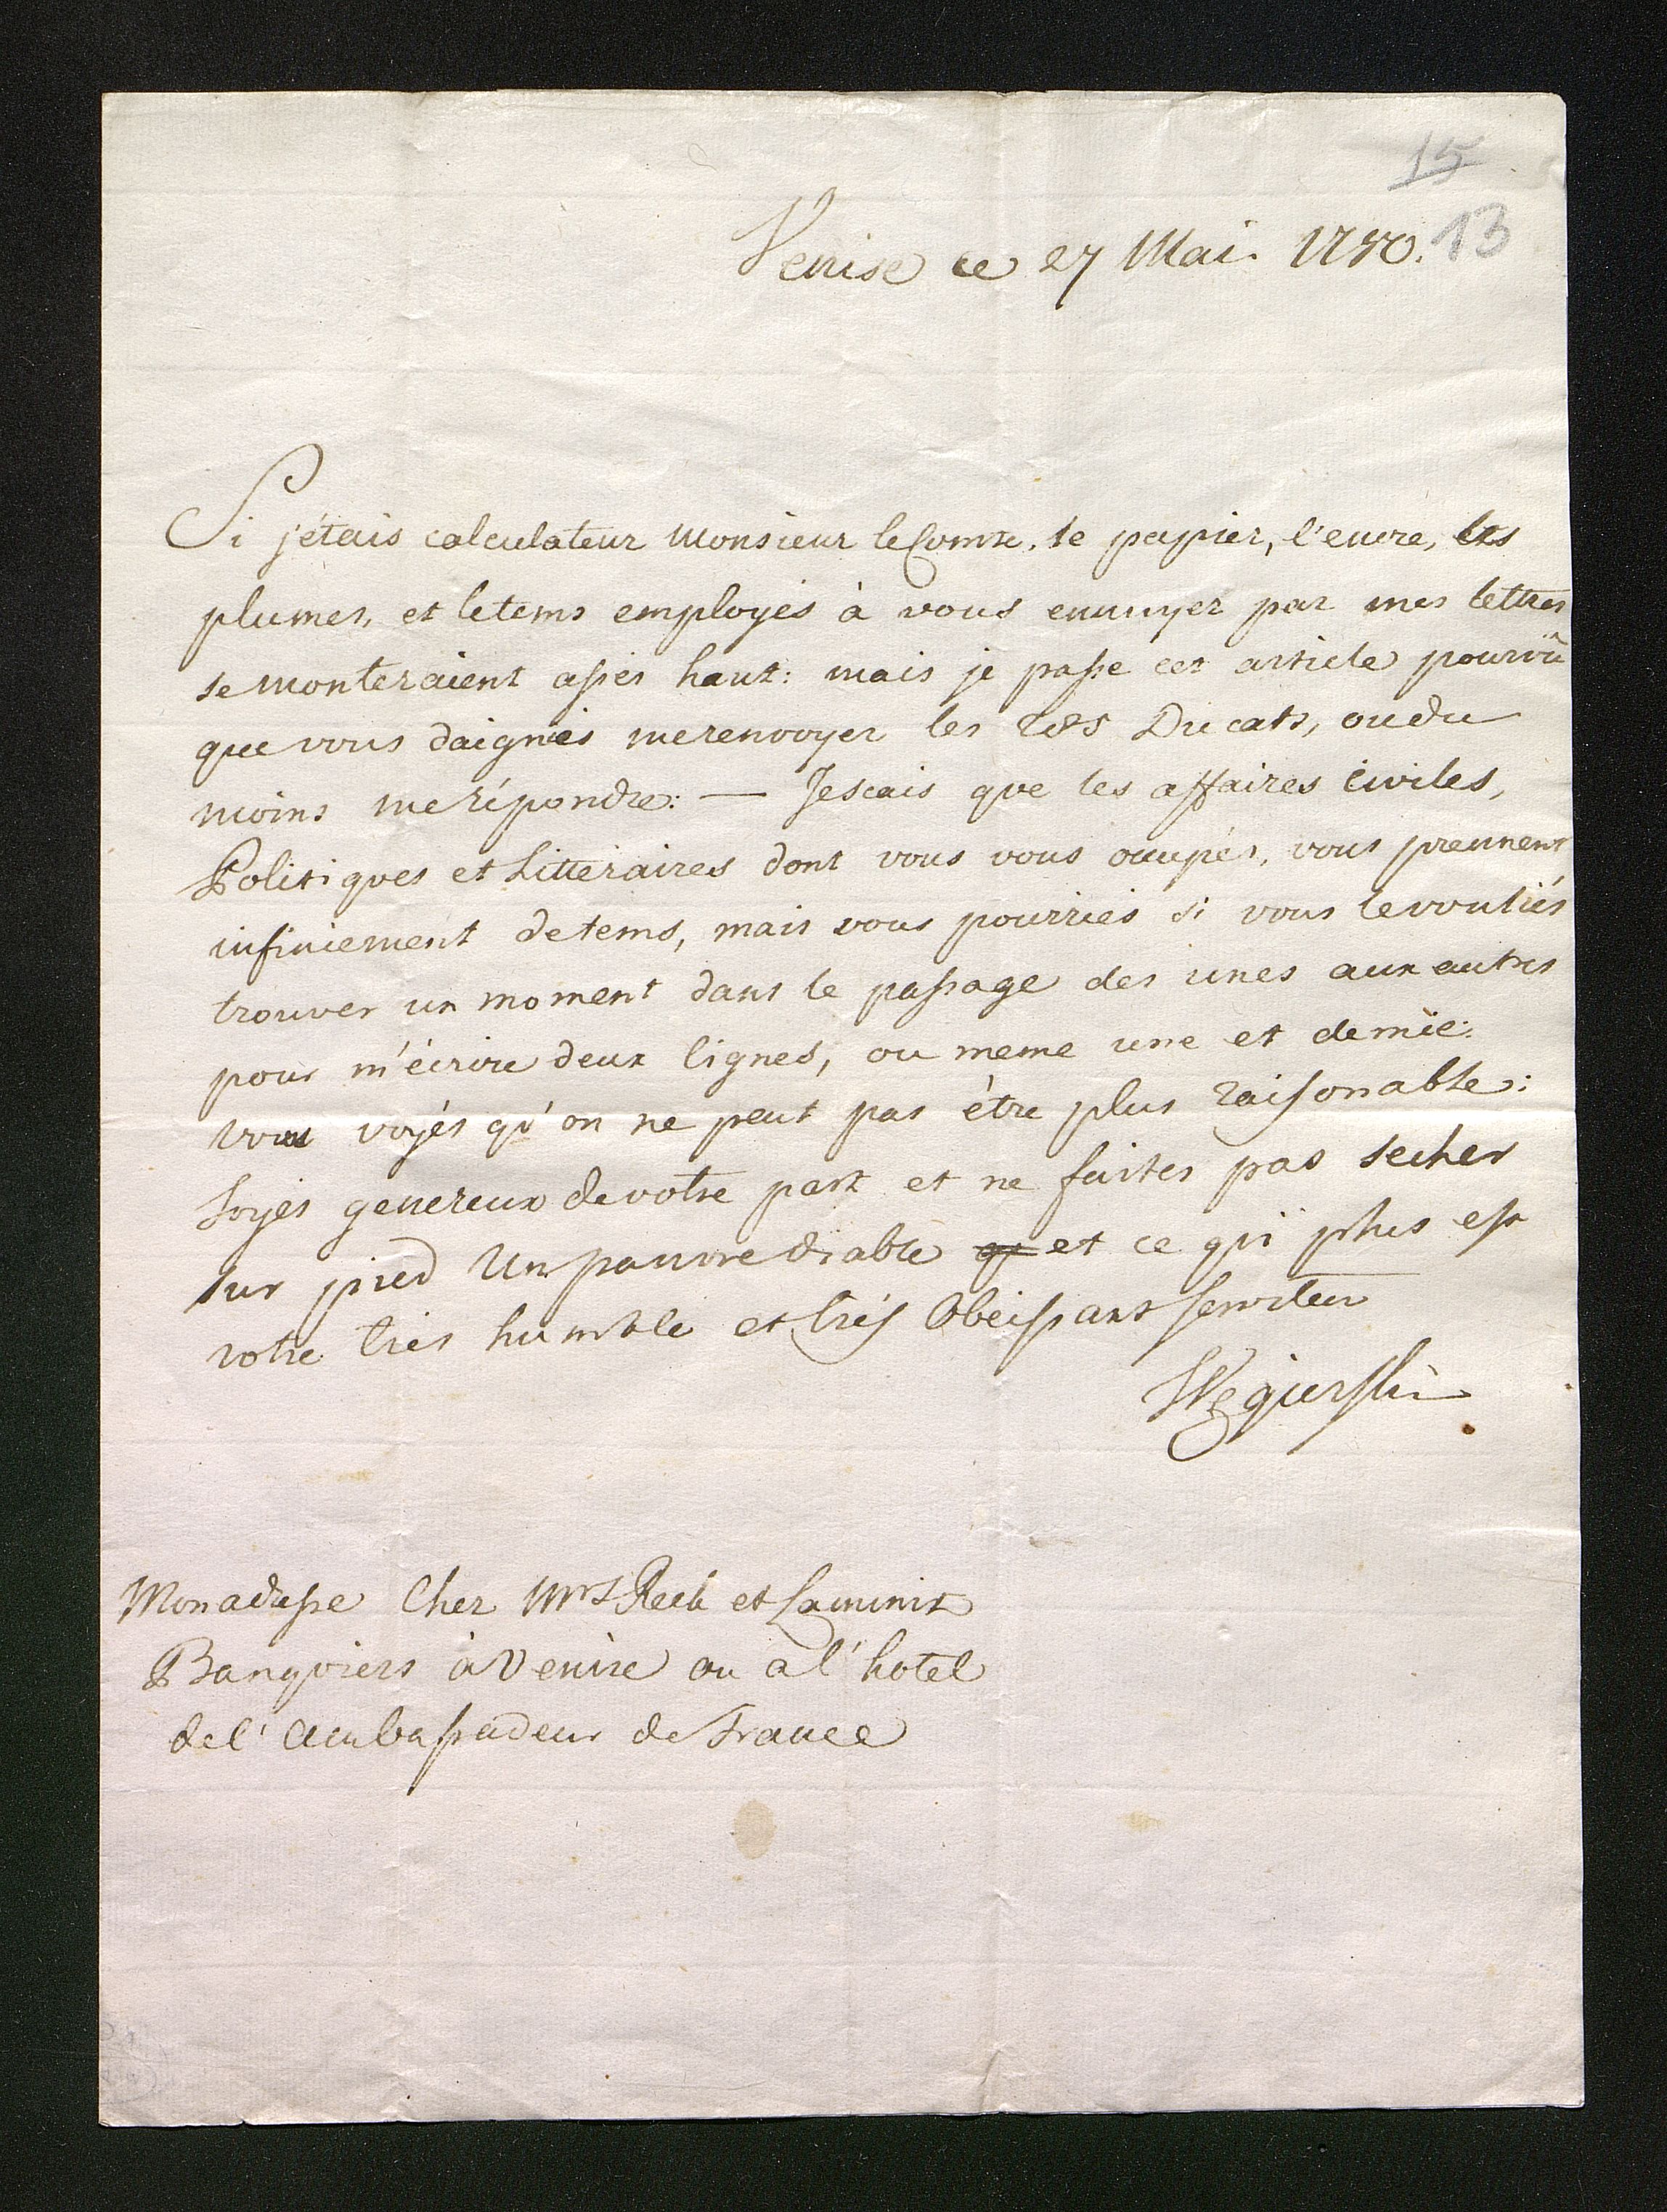 15
13
Venise ce 27 Mai. 1780.
Si j'étais calculateur Monsieur le Comte, le papier, l'encre, les
plumes, et letems employés à vous ennuyer par mes lettres
se monteraient assés haut: mais je passe cet article pourvû
que vous daigniés merenvoyer les 285 Ducats, oudu
moins merépondre: — Jescais que les affaires civiles,
Politiques et Litteraires dont vous vous occupés, vous prennent
infiniement detems, mais vous pourriés si vous levouliés
trouver un moment dans le passage des unes aux autres
pour m'écrire deux lignes, ou meme une et demie:
vous voyés qu'on ne peut pas être plus raisonable:
soyés genereux devotre part et ne faites pas secher
sur pied Un pauvre diable et ce qui plus est
votre très humble et très Obeissant serviteur
Węgierski
Monadresse Cher Mrs Reck et Laminit
Banquiers à Venise ou a l'hotel
del'Ambassadeur de France